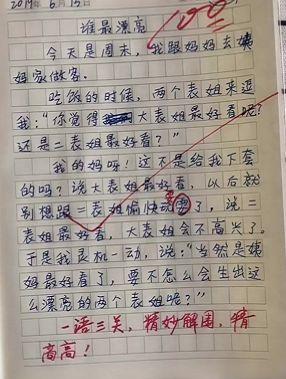 2019年6月15日
100
谁最漂亮
今天是周末,我跟妈妈去姨
妈家做客。
吃饭的时候,两个表姐来逗
我:“你觉得大表姐最好看呢?
还是二表姐最好看?”
我的妈呀!这不是给我下套
的吗?说大表姐最好看,以后就
别想跟二表姐愉快玩耍了,说二
表姐最好看,大表姐会不高兴了。
于是我灵机一动,说:“当然是姨
妈最好看了,要不怎么会生出这
么漂亮的两个表姐呢?”
一语三关,精妙解围,情
高高!